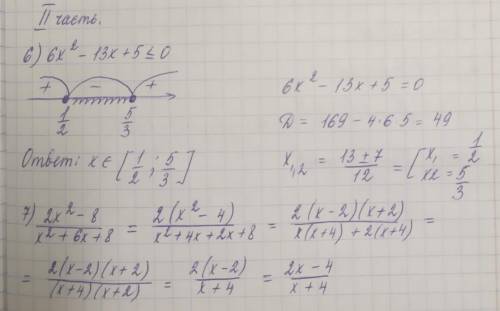 II часть.
6) 6x² - 13x + 5 ≤ 0
+ - +
1/2 5/3
6x² - 13x + 5 = 0
D = 169 - 4·6 5 = 49
x₁,₂ = (13 ± 7)/12 = [x₁ = 1/2
x2 = 5/3
Ответ: x ∈ [1/2 ; 5/3]
7) (2x² - 8)/(x² + 6x + 8) = 2(x² - 4)/(x² + 4x + 2x + 8) = 2(x - 2)(x + 2)/(x(x + 4) + 2(x + 4)) =
= 2(x - 2)(x + 2)/((x + 4)(x + 2)) = 2(x - 2)/(x + 4) = (2x - 4)/(x + 4)